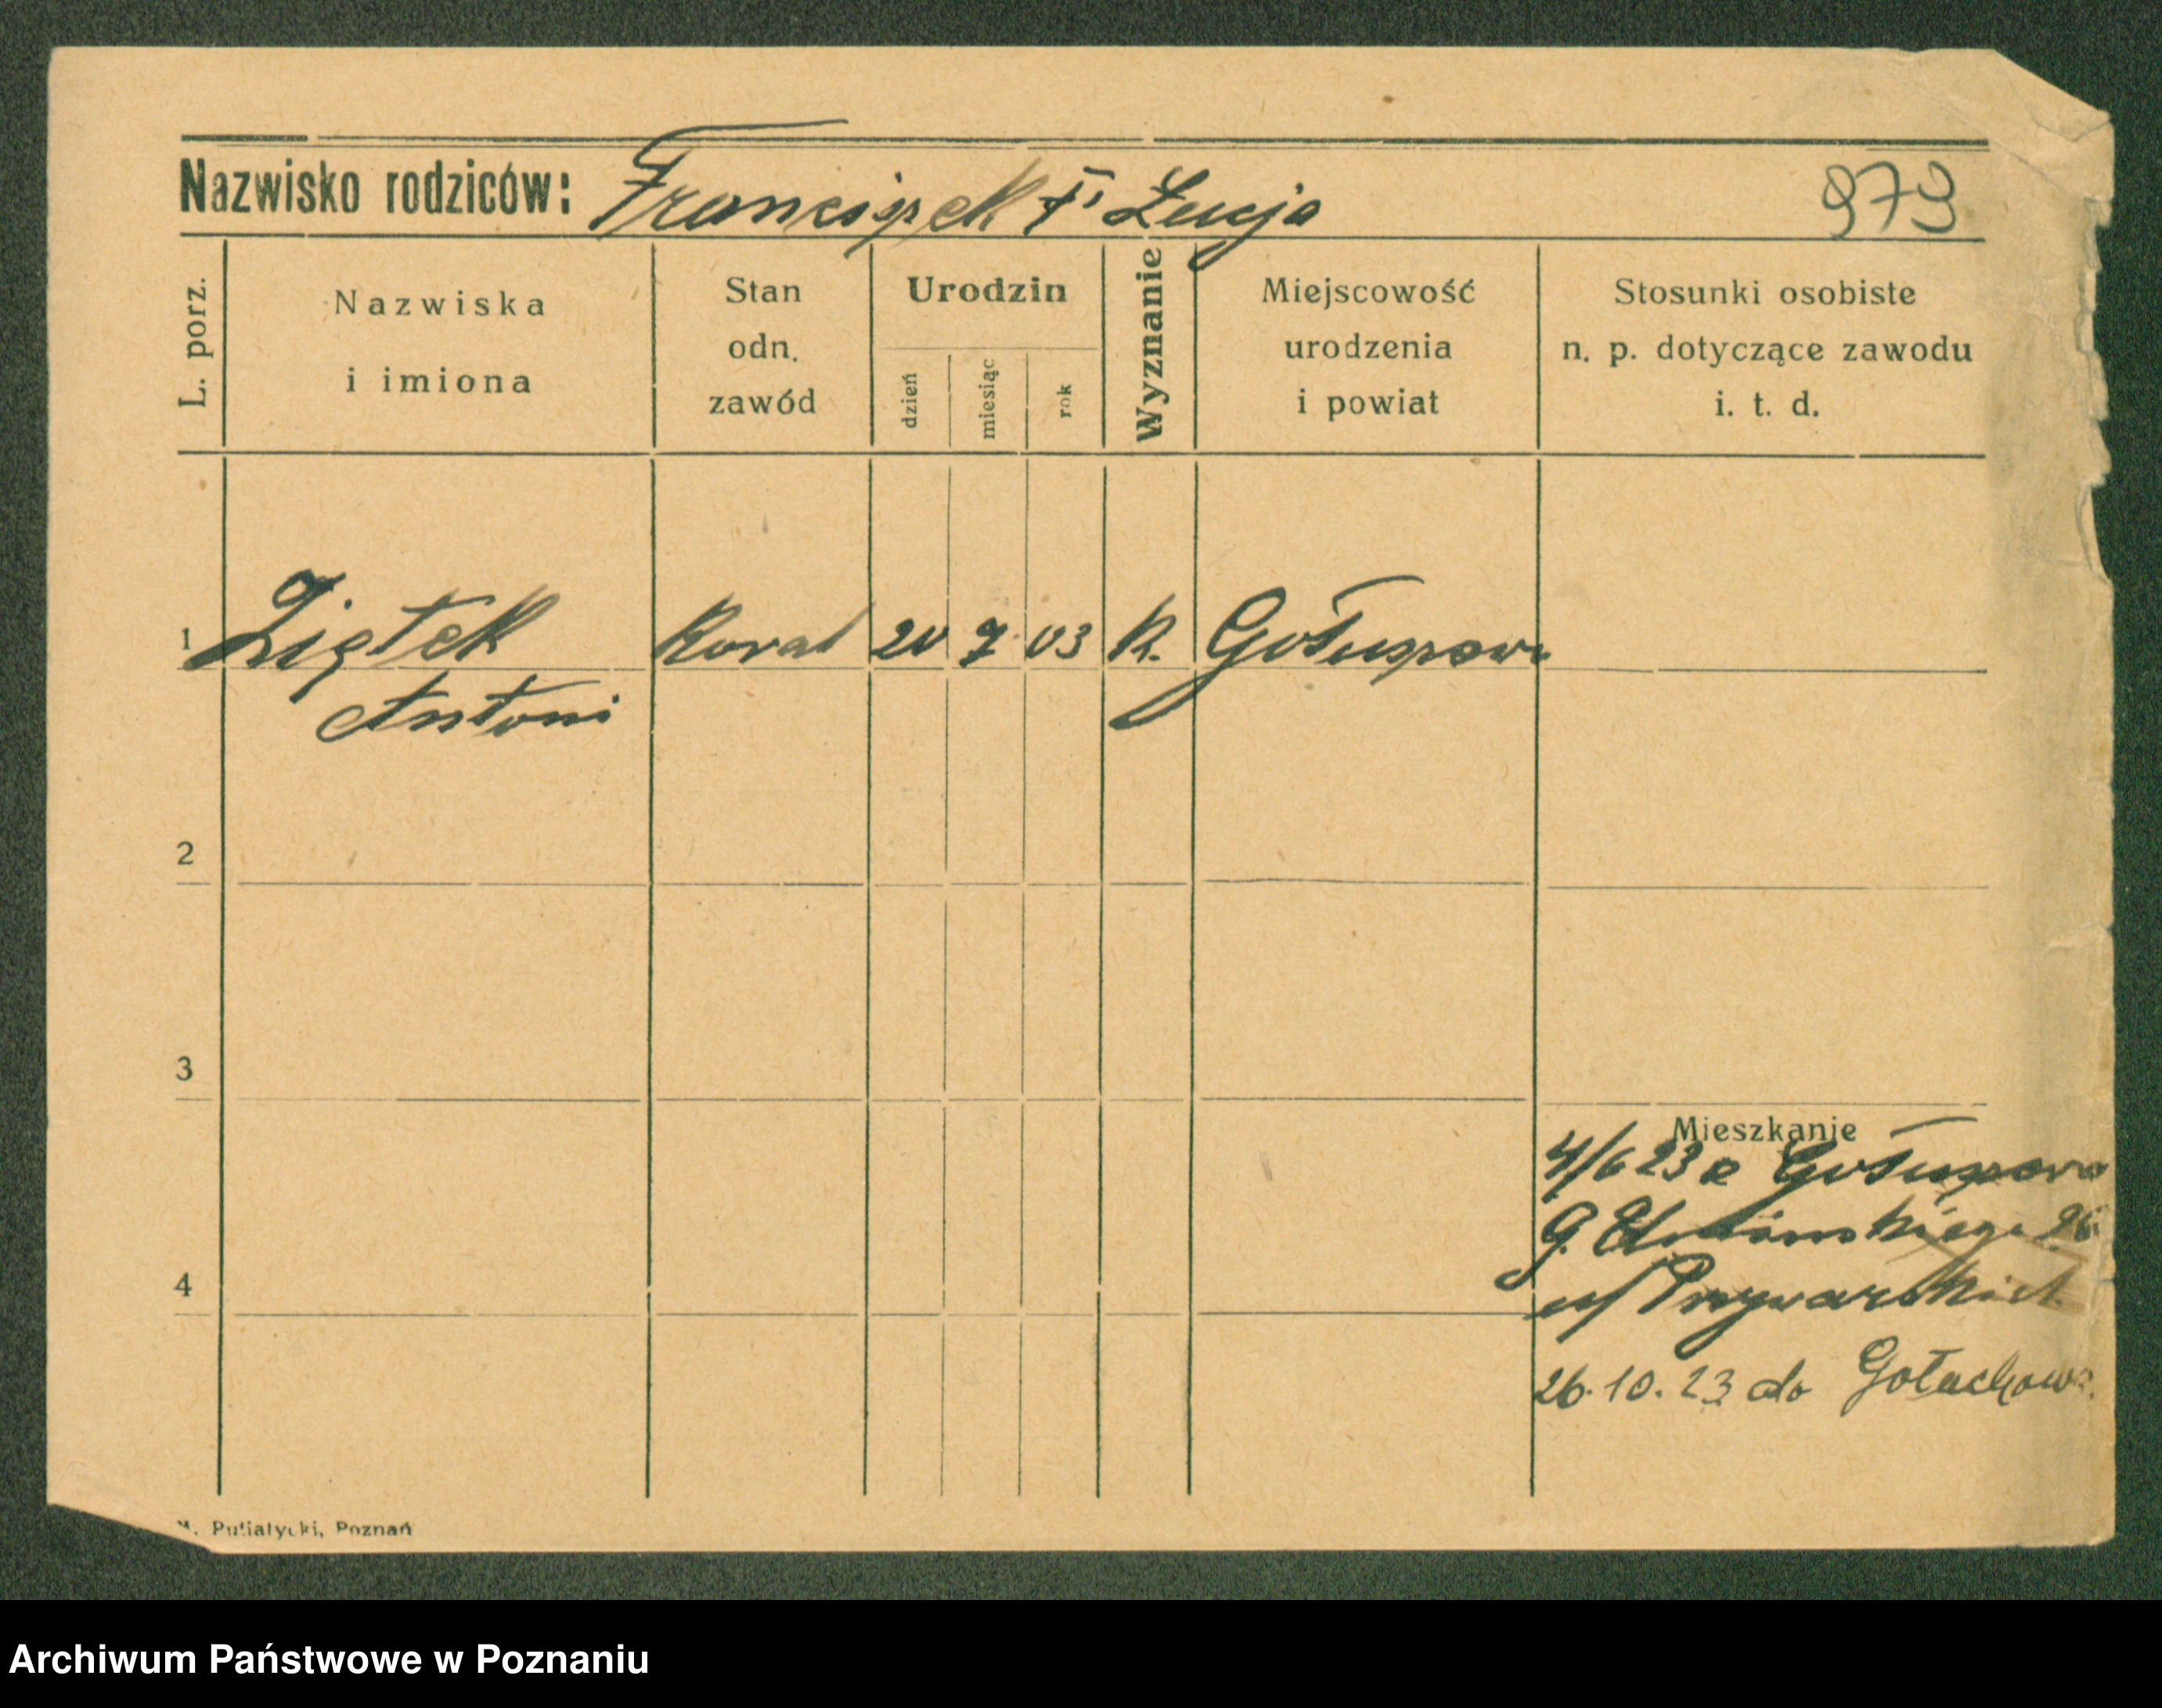 Nazwisko rodziców: Franciszek i Łucja 979
L. porz.
Nazwiska
i imiona
Stan
odn.
zawód
Urodzin
dzień
miesiąc
rok
Wyznanie
Miejscowość
urodzenia
i powiat
Stosunki osobiste
n. p. dotyczące zawodu
i. t. d.
1 Ziętek Kowal 20 7 03 K.
Antoni
2
3
Mieszkanie
4/6 23 z
G.
4
26.10.23 do Gołuchowa.
Poznań
Archiwum Państwowe w Poznaniu